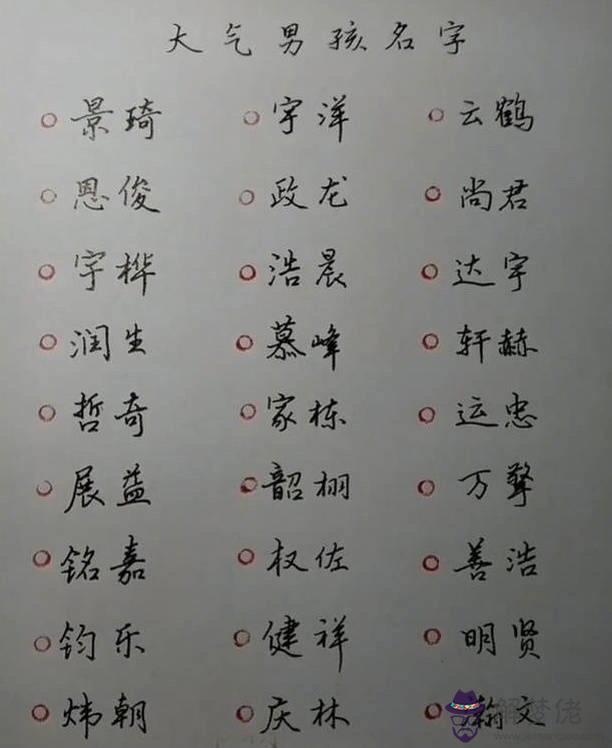 大气男孩名字
景琦 宇洋 云鹤
恩俊 政龙 尚君
宇桦 浩晨 达宇
润生 慕峰 轩赫
哲奇 家栋 运忠
展益 韶栩 万擎
铭嘉 权佐 善浩
钧乐 健祥 明贤
炜朝 庆林 瀚文
解梦佬